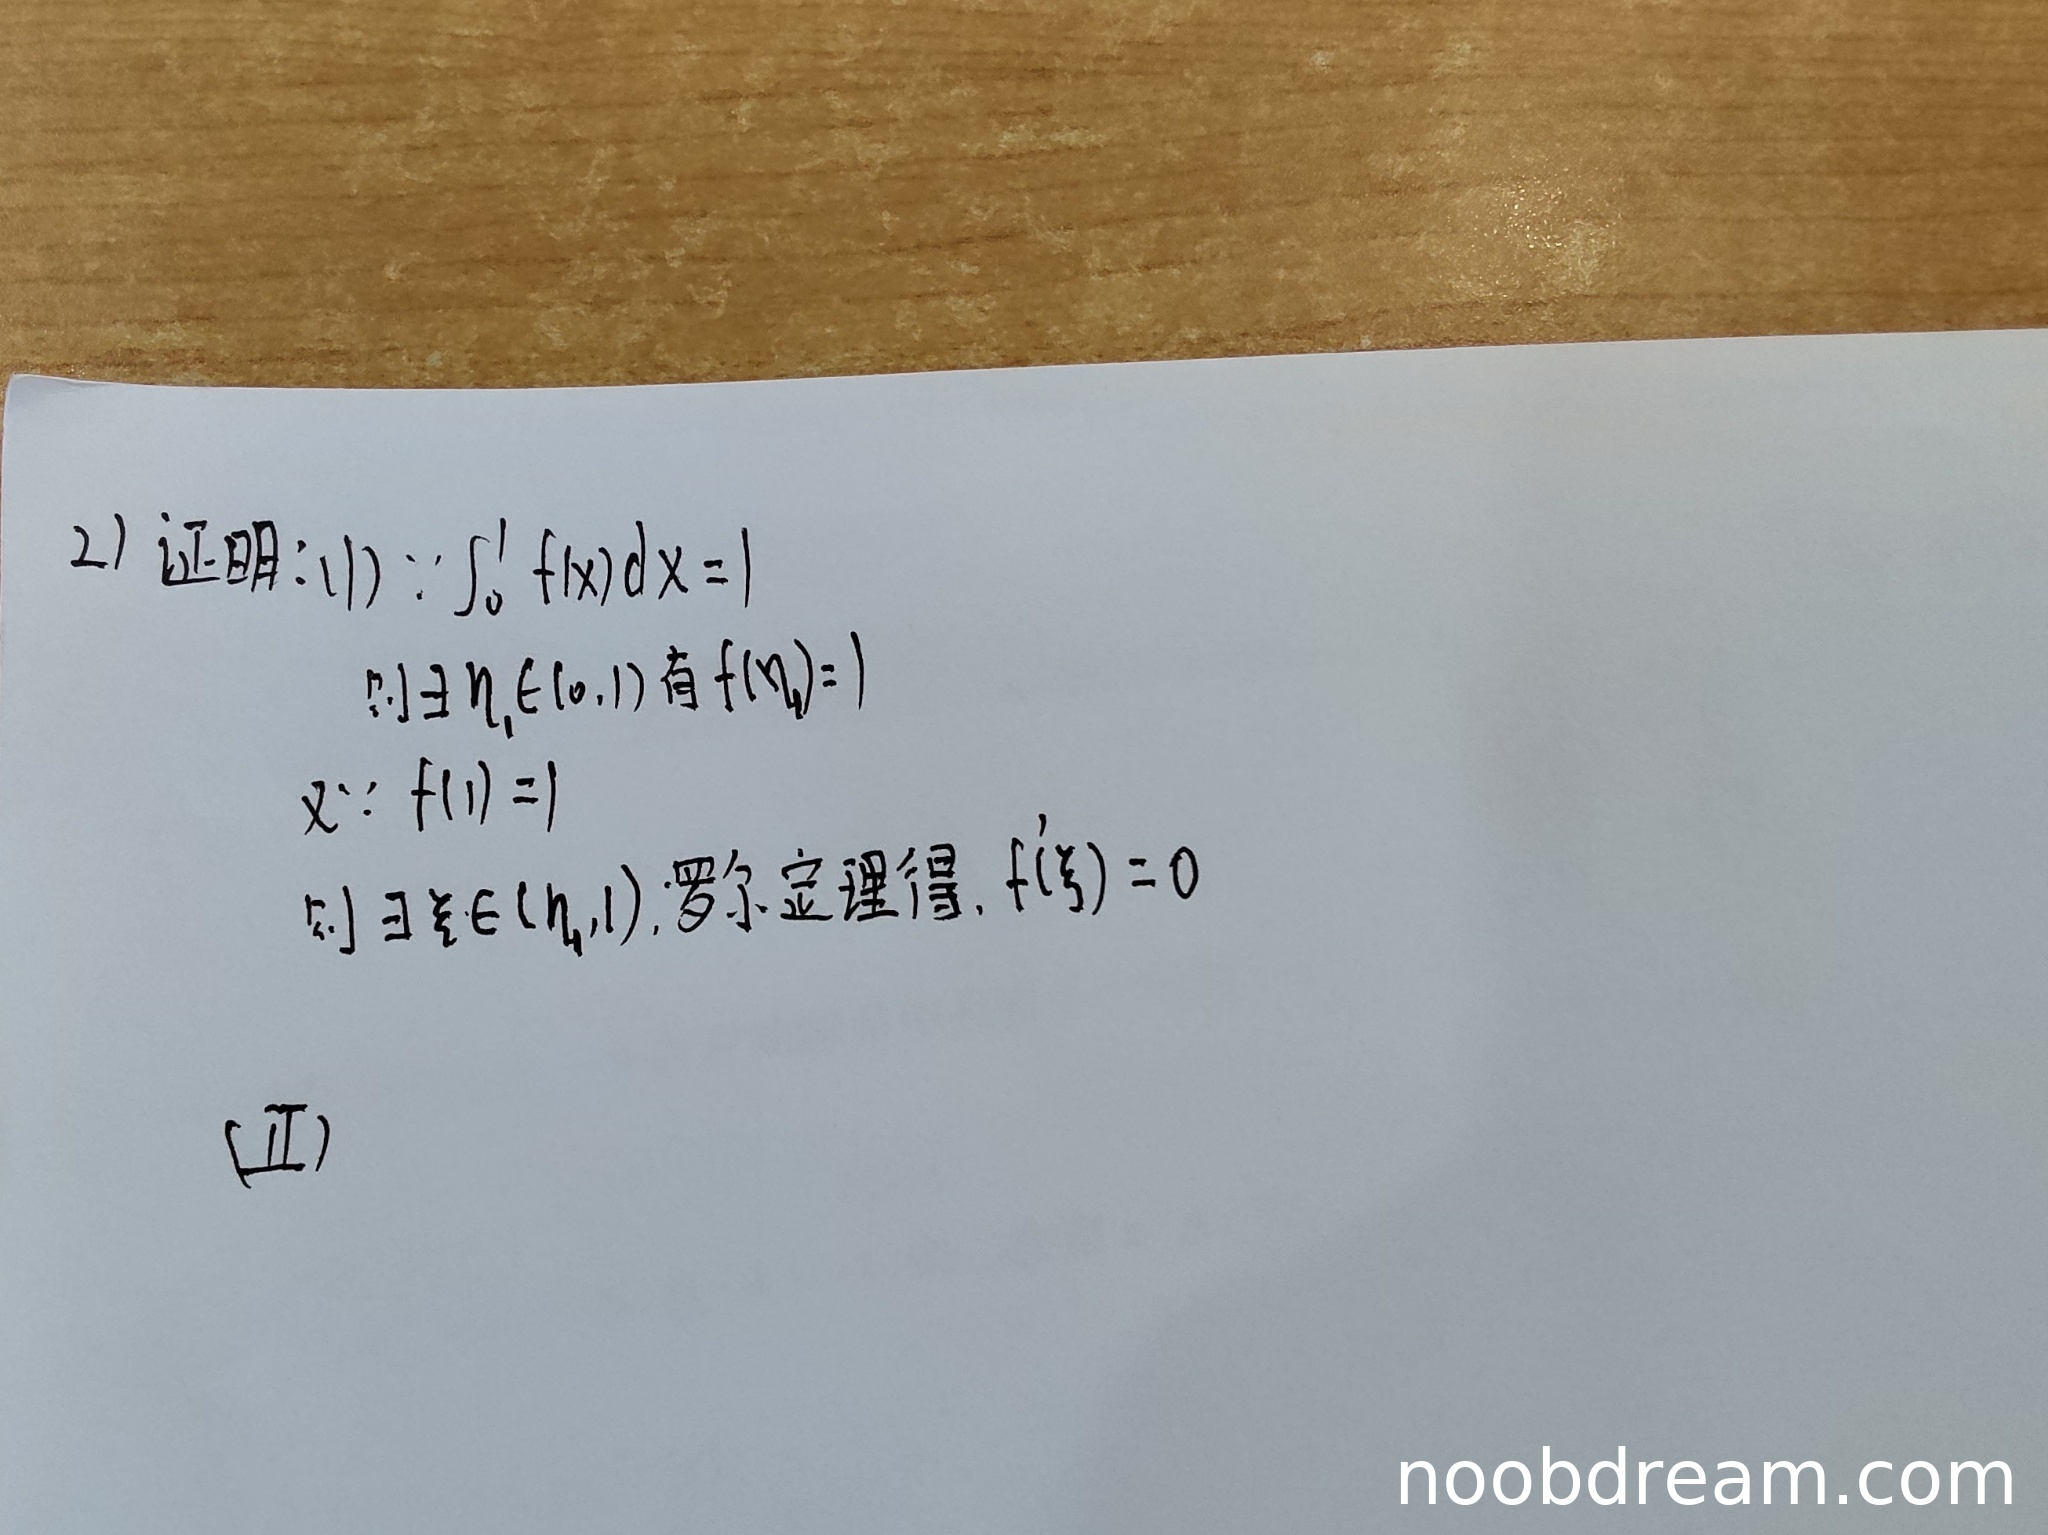 2) 证明:(1) ∵ ∫₀¹ f(x)dx=1
则∃η₁∈(0,1)有f(η₁)=1
又∵ f(1)=1
则∃ξ∈(η₁,1),罗尔定理得,f'(ξ)=0
(II)
noobdream.com